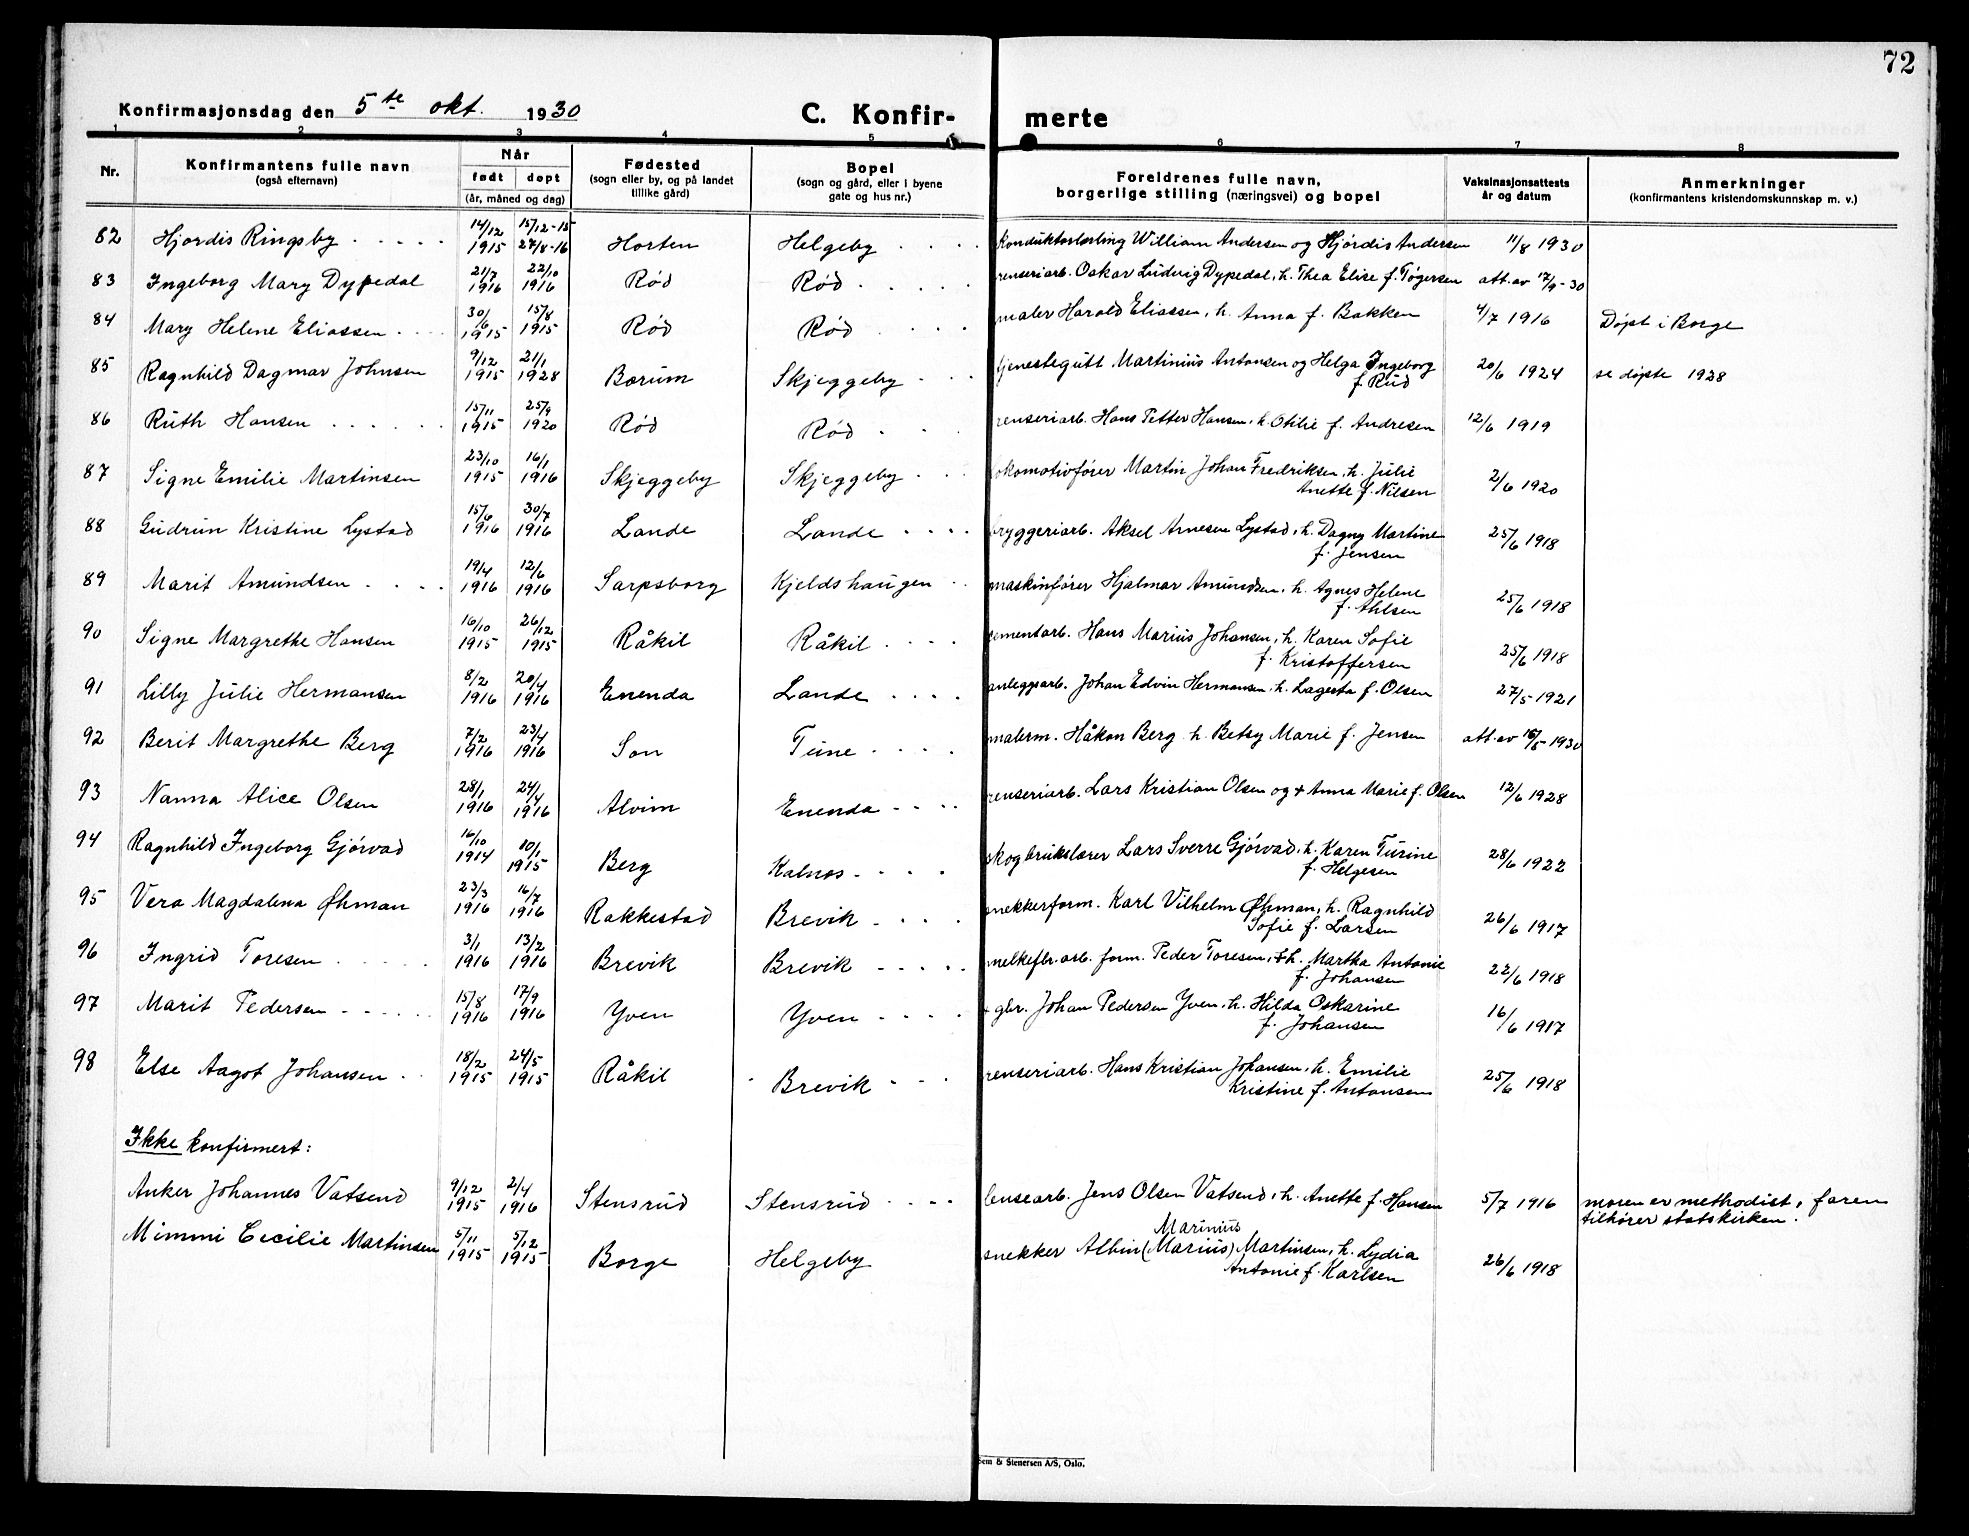 72
Konfirmasjonsdag den 5te okt. 1930 C. Konfir- merte
1 2 3 4 5 6 7 8
Nr. Konfirmantens fulle navn (også efternavn) Når født døpt (år, måned og dag) Fødested (sogn eller by, og på landet tillike gård) Bopel (sogn og gård, eller i byene gate og hus nr.) Foreldrenes fulle navn, borgerlige stilling (næringsvei) og bopel Vaksinasjonsattests år og datum Anmerkninger (konfirmantens kristendomskunnskap m. v.)
82 Hjørdis Ringsby 14/12 1915 15/12-15 27/8-16 Horten Helgeby William Andersen og Hjørdis Andersen 11/8 1930
83 Ingeborg Mary Dypedal 21/7 1916 22/10 1916 Rød Rød renseriarb. Oskar Ludvig Dypedal, h. Thea Elise f. Tøgersen att. av 17/9-30
84 Mary Helene Eliassen 30/6 1915 15/8 1915 Rød Rød maler Harald Eliassen, h. Anna f. Bakken 4/7 1916 Døpt i Borge
85 Ragnhild Dagmar Johnsen 9/12 1915 21/1 1928 Bærum Skjeggeby tjenestegutt Martinius Antonsen og Helga Ingeborg f. Rud 20/6 1924 se døpte 1928
86 Ruth Hansen 15/11 1915 25/9 1920 Rød Rød renseriarb. Hans Petter Hansen, h. Otilie f. Andresen 12/6 1919
87 Signe Emilie Martinsen 23/10 1915 16/1 1916 Skjeggeby Skjeggeby lokomotivfører Martin Johan Fredriksen, h. Julie Anette f. Nilsen 2/6 1920
88 Gudrun Kristine Lystad 15/6 1916 30/7 1916 Lande Lande bryggeriarb. Aksel Arnesen Lystad, h. Dagny Martine f. Jensen 25/6 1918
89 Marit Amundsen 19/4 1916 12/6 1916 Sarpsborg Kjeldshaugen maskinfører Hjalmar Amundsen, h. Agnes Helene f. Ahlsen 25/6 1918
90 Signe Margrethe Hansen 16/10 1915 26/12 1915 Råkil Råkil sementarb. Hans Marius Johansen, h. Karen Sofie f. Kristoffersen 25/6 1918
91 Lilly Julie Hermansen 8/2 1916 20/4 1916 Enenda Lande anleggsarb. Johan Edvin Hermansen, h. Lagesta f. Olsen 27/5-1921
92 Berit Margrethe Berg 7/2 1916 23/4 1916 Son Tune malerm. Håkon Berg h. Betsy Marie f. Jensen att. av 16/5-1930
93 Nanna Alice Olsen 28/1 1916 24/4 1916 Alvim Enenda renseriarb. Lars Kristian Olsen og + Anna Marie f. Olsen 12/6 1928
94 Ragnhild Ingeborg Gjørvad 16/10 1914 10/1 1915 Berg Kalnes skogbrukslærer Lars Sverre Gjørvad, h. Karen Turine f. Helgesen 28/6 1922
95 Vera Magdalena Øhman 23/3 1916 16/7 1916 Rakkestad Brevik snekkerform. Karl Vilhelm Øhman, h. Ragnhild Sofie f. Larsen 26/6 1917
96 Ingrid Toresen 3/1 1916 13/2 1916 Brevik Brevik melkefbr.arb. form. Peder Toresen, + h. Martha Antonie f. Johansen 22/6 1918
97 Marit Pedersen 15/8 1916 17/9 1916 Yven Yven + gbr. Johan Pedersen Yven, h. Hilda Oskarine f. Johansen 16/6 1917
98 Else Aagot Johansen 18/2 1915 24/5 1915 Råkil Brevik renseriarb. Hans Kristian Johansen, h. Emilie Kristine f. Antonsen 25/6 1918
Ikke konfirmert:
Anker Johannes Vatsend 9/12 1915 2/4 1916 Stensrud Stensrud lensearb. Jens Olsen Vatsend, h. Anette f. Hansen 5/7 1916 moren er methodist, faren tilhører statskirken.
Mimmi Cecilie Martinsen 5/11 1915 5/12 1915 Borge Helgeby snekker Albin (Marius) Marinius Martinsen, h. Lydia Antonie f. Karlsen 26/6 1918
Sem & Stenersen A/S, Oslo.